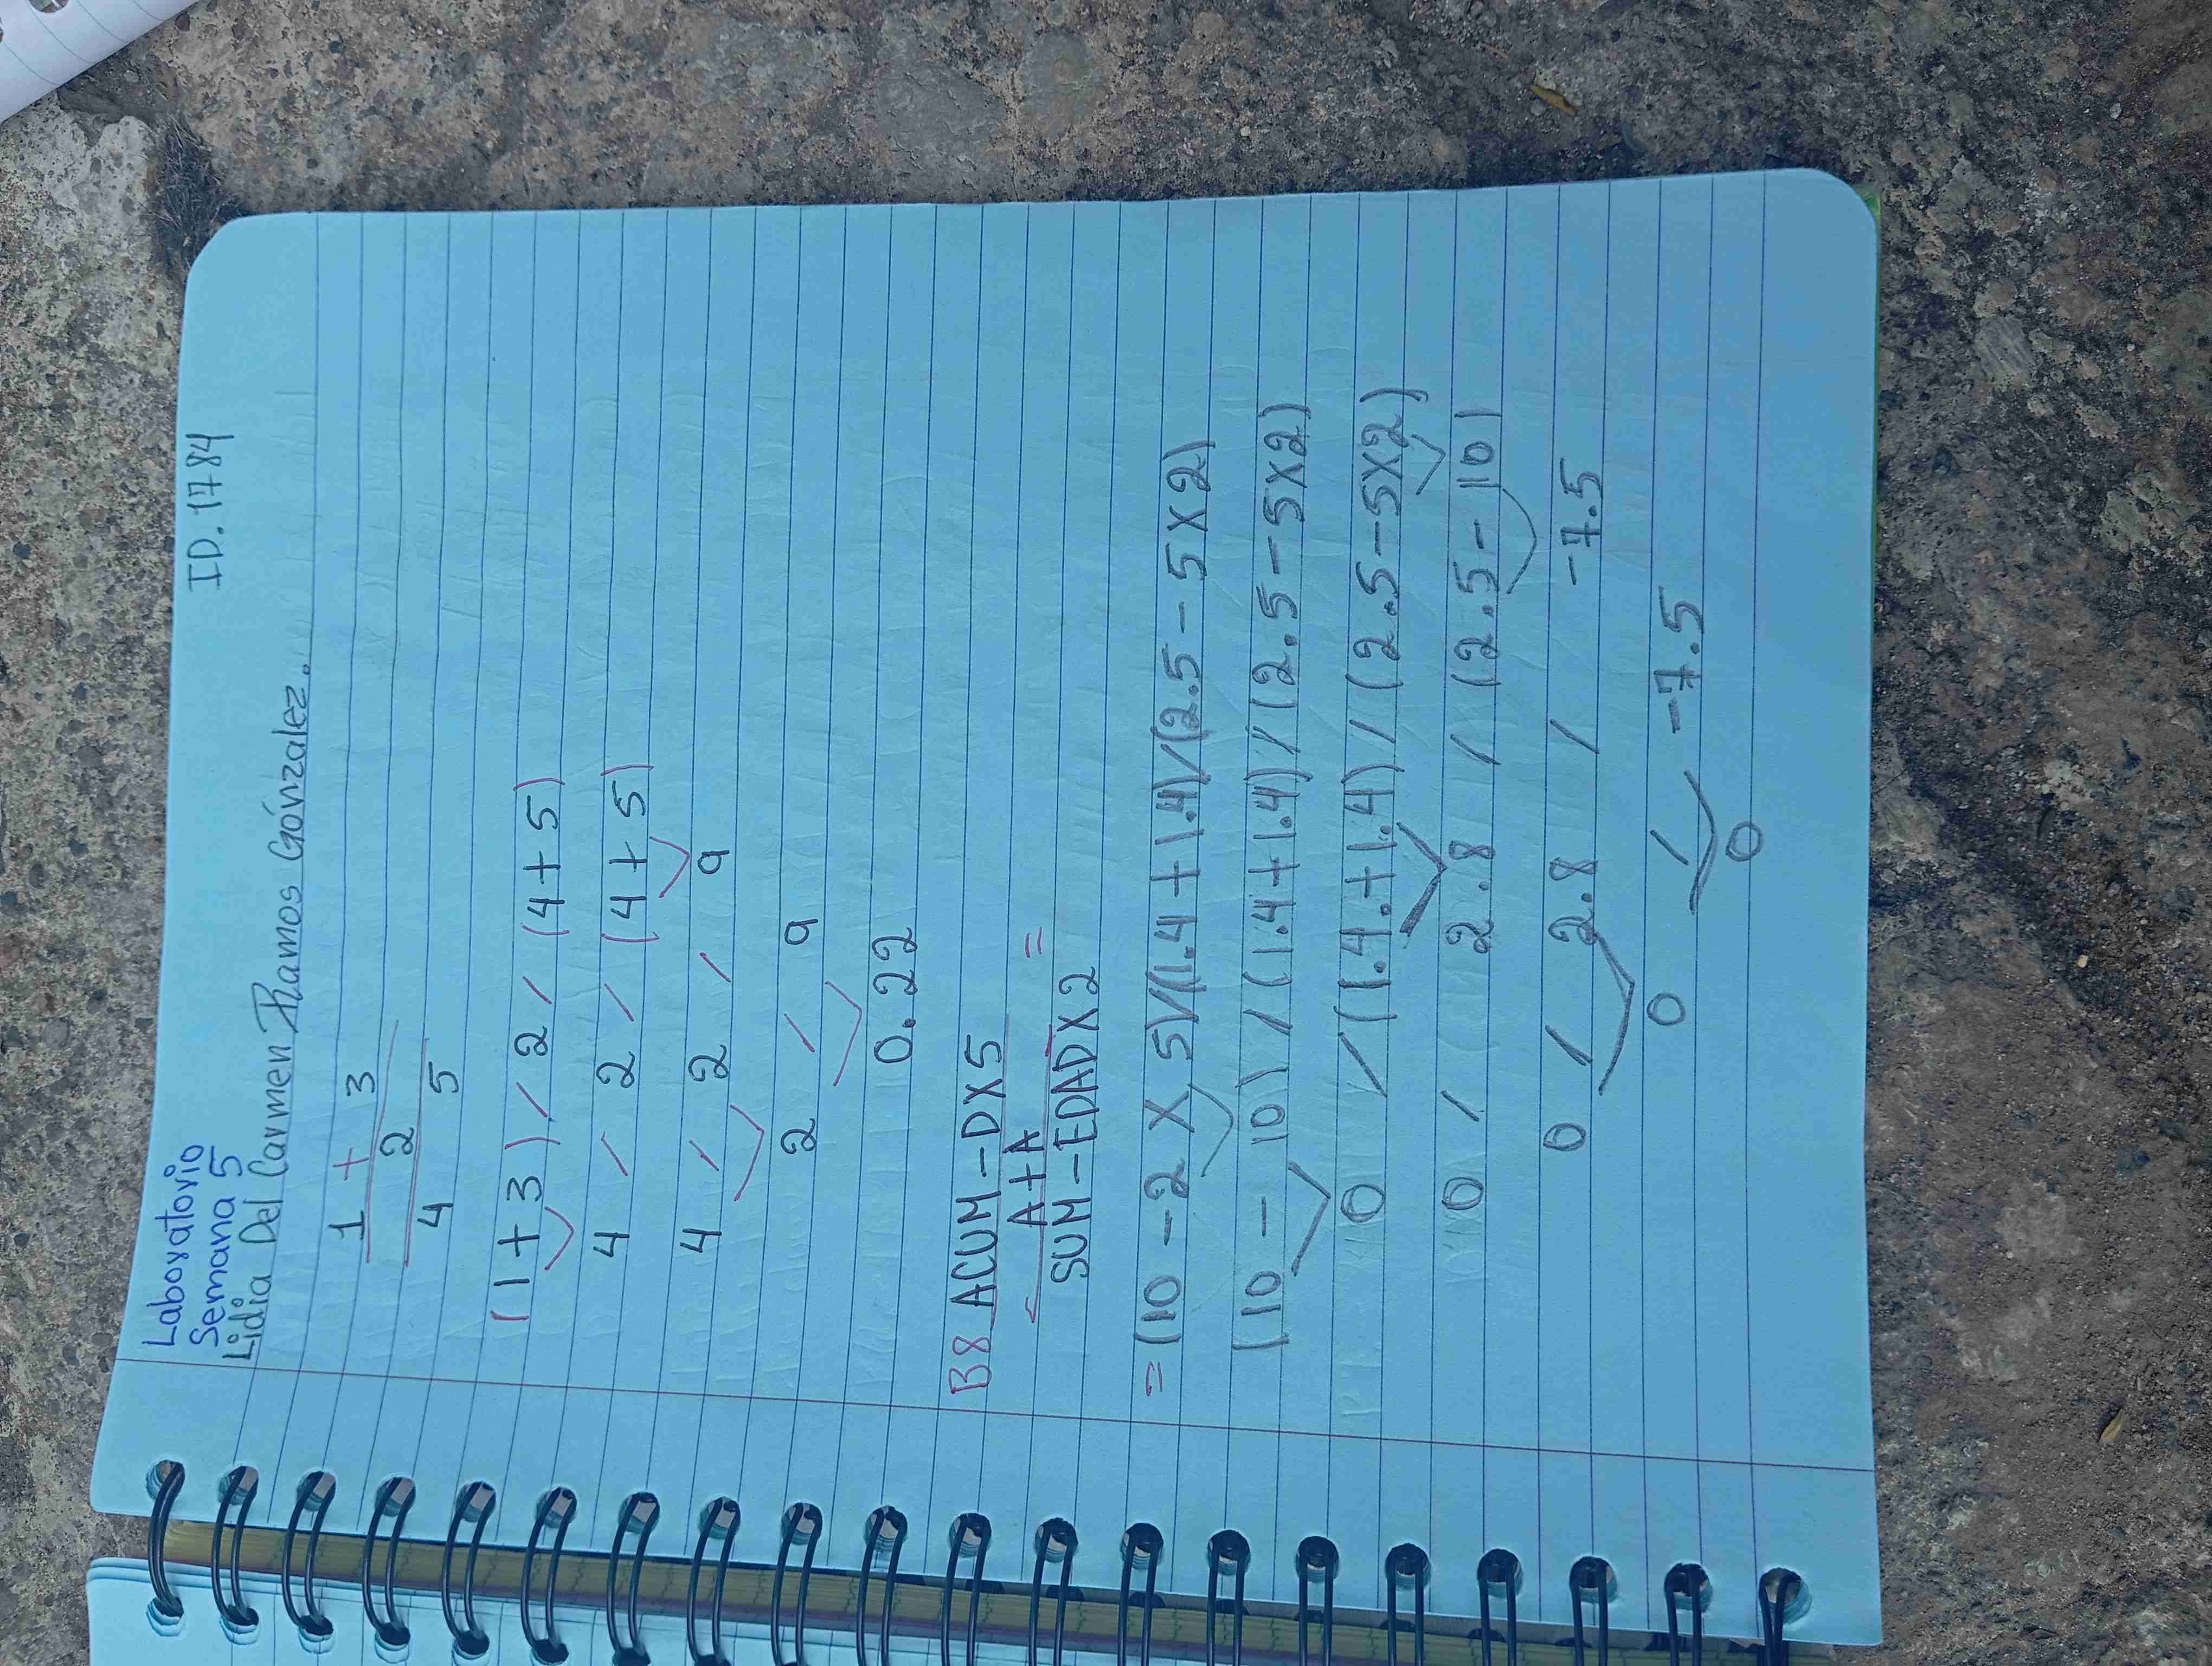 ID. 1784
Laboratorio
Semana 5
Lidia Del Carmen Ramos Gónzalez.
1 + 3
2
4 5
(1+3) / 2 / (4+5)
4 / 2 / (4+5)
4 / 2 / 9
2 / 9
0.22
B8 ACUM-DX5
A+A =
SUM-EDADX2
=(10-2 X 5)/(1.4+1.4)/(2.5-5X2)
(10-10)/(1.4+1.4)/(2.5-5X2)
0 /(1.4.+1.4)/(2.5-5X2)
0 / 2.8 / (2.5-10)
0 / 2.8 / -7.5
0 / -7.5
0